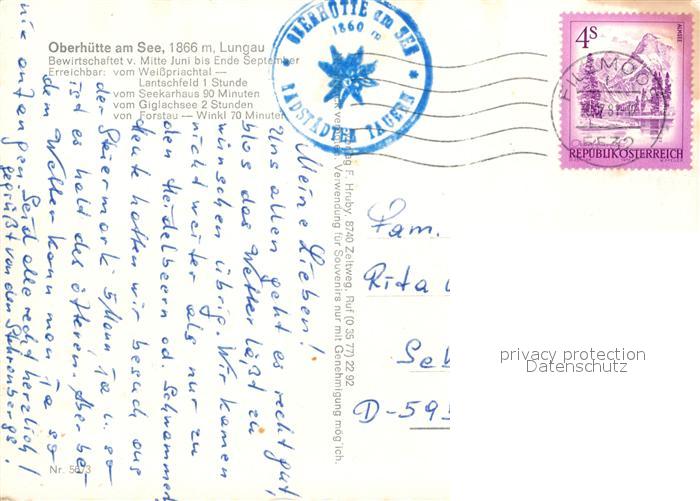 Oberhütte am See, 1866 m, Lungau
Bewirtschaftet v. Mitte Juni bis Ende September
Erreichbar: vom Weißpriachtal —
Lantschfeld 1 Stunde
vom Seekarhaus 90 Minuten
vom Giglachsee 2 Stunden
von Forstau — Winkl 70 Minuten
OBERHÜTTE am SEE
1860 m
RADSTÄDTER TAUERN
4s
ALMSEE
REPUBLIK ÖSTERREICH
FILZMOOS
5532
Meine Lieben!
Uns allen geht es recht gut,
blos das Wetter läßt zu
wünschen übrig. Wir kamen
nicht weiter als nur zu
den Heidelbeern od. Schwammel
Heute hatten wir besuch aus
der Steiermark 5 Mann Ta u. so
ist es halt des öfteren. Aber bei
dem Wetter kann man Ta so
nie anfangen. Seid alle recht herzlich
gegrüßt von den
F. Hruby, 8740 Zeltweg, Ruf (0 35 77) 22 92
Verwendung für Souvenirs nur mit Genehmigung möglich.
Fam.
Rita
Se
D-595
Nr. 56/3
privacy protection
Datenschutz